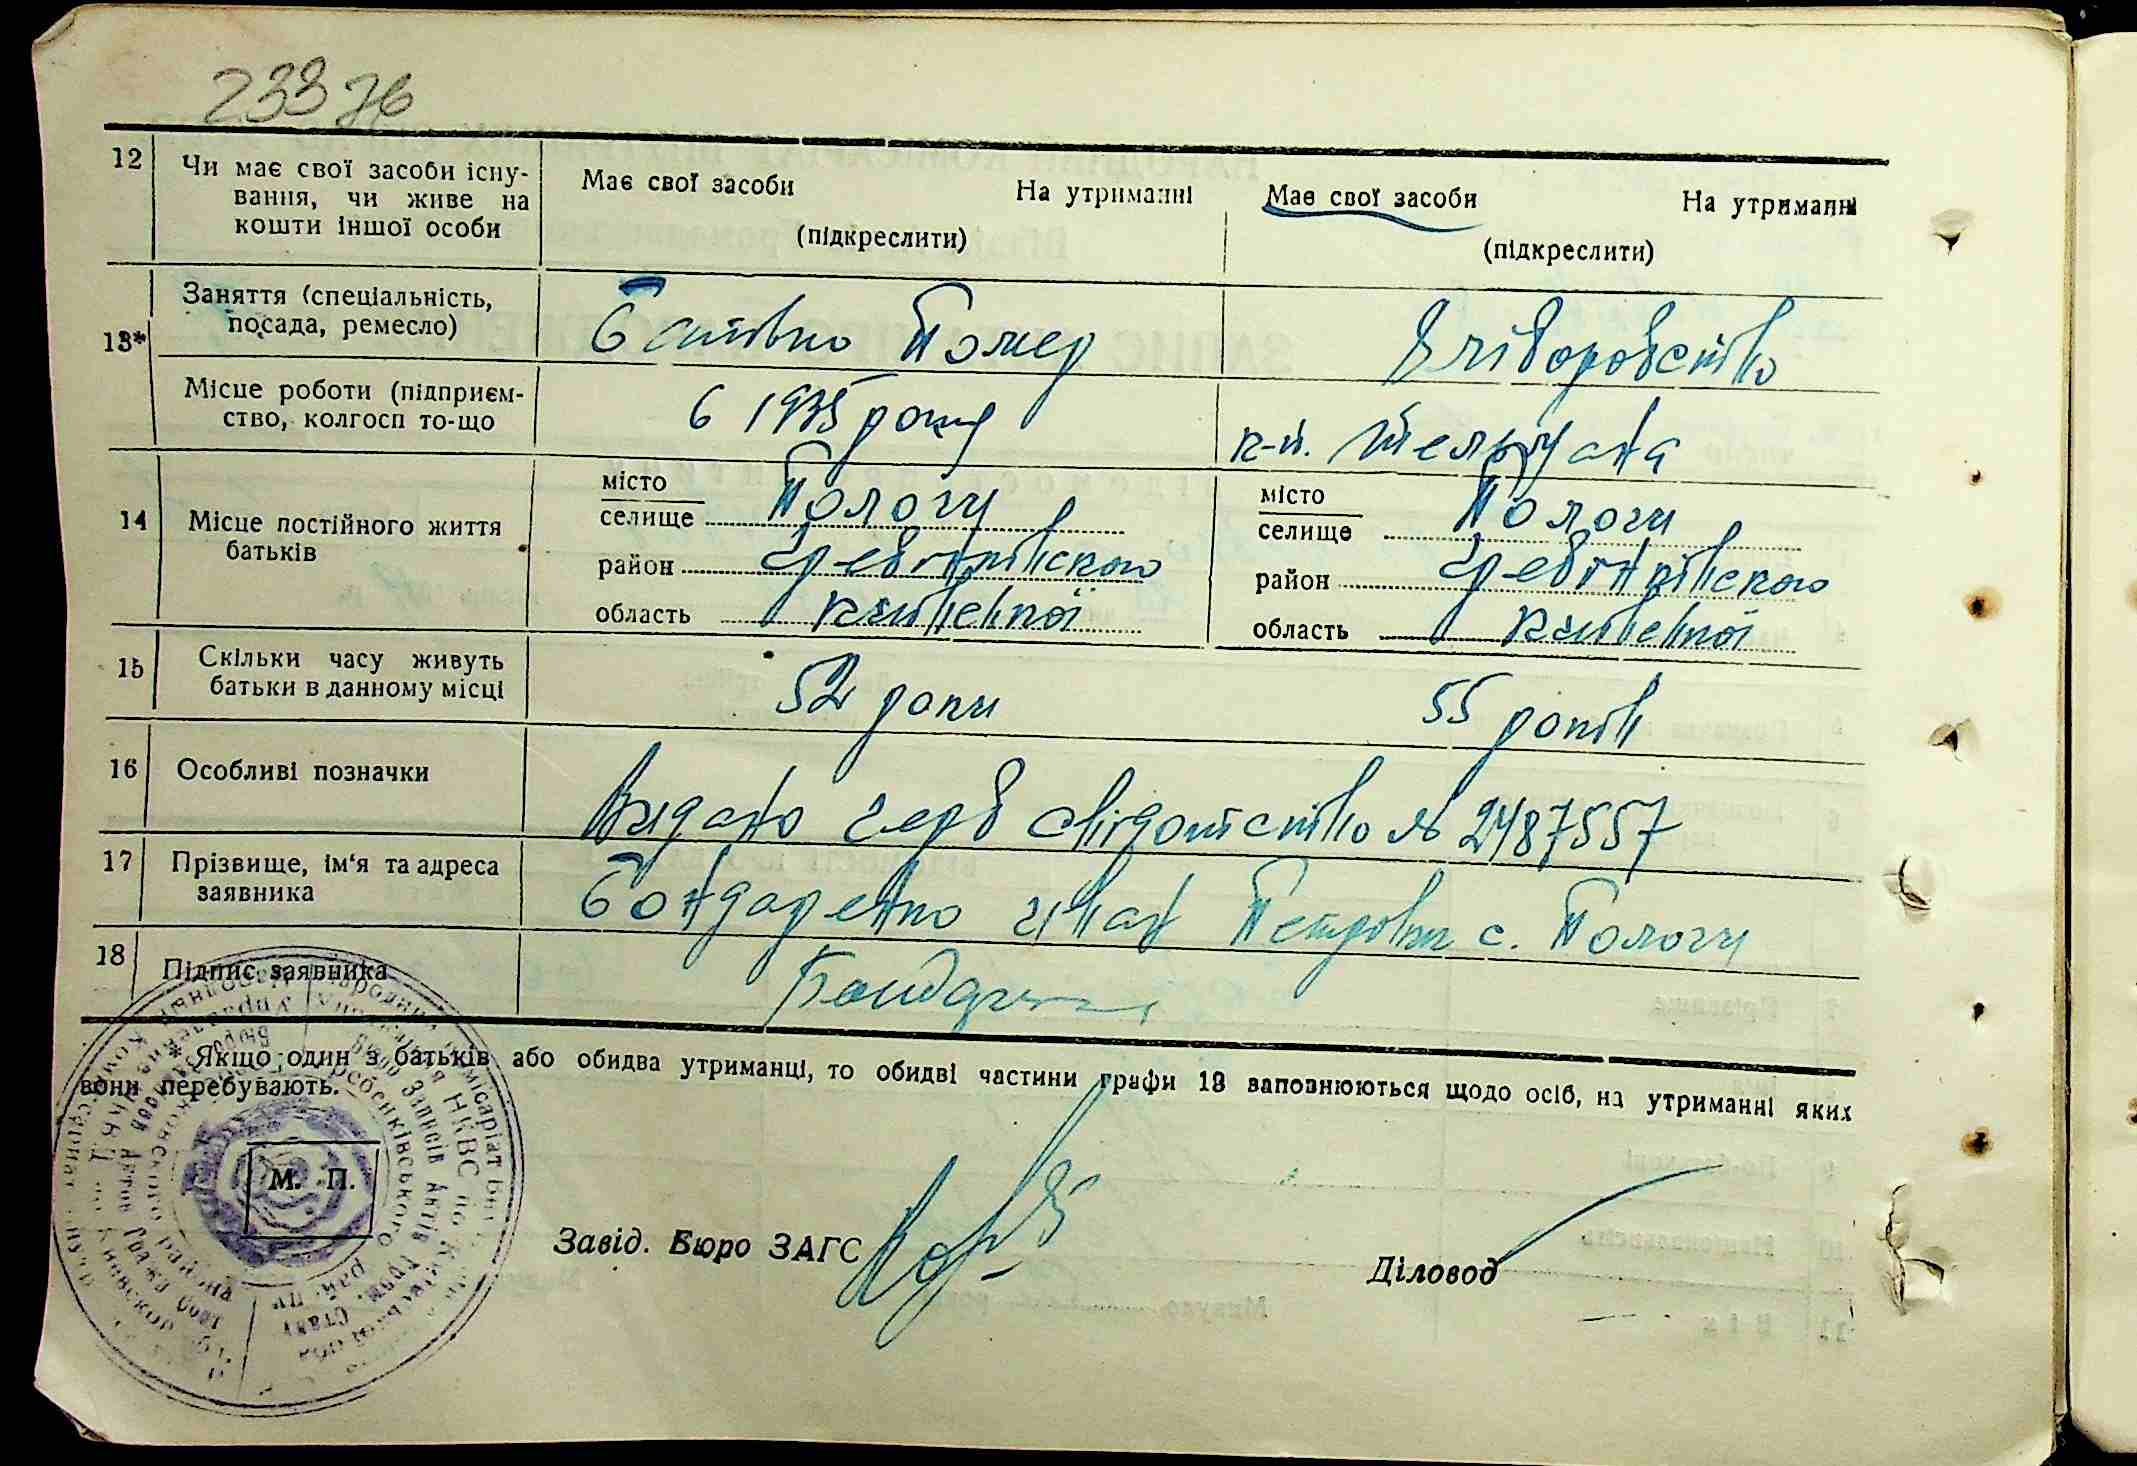 233 зв
12 Чи має свої засоби існу-
вання, чи живе на
кошти іншої особи
Має свої засоби На утриманні
(підкреслити)
Має свої засоби На утриманні
(підкреслити)
13* Заняття (спеціальність,
посада, ремесло)
Батько Помер
Хліборобство
Місце роботи (підприєм-
ство, колгосп то-що
в 1935 році
к-п. Тельмана
14 Місце постійного життя
батьків
місто
селище Пологи
район Гребінківського
область Київської
місто
селище Пологи
район Гребінківського
область Київської
15 Скільки часу живуть
батьки в данному місці
52 роки
55 років
16 Особливі позначки
Видано герб свідотство № 2487557
17 Прізвище, ім'я та адреса
заявника
Бондаренко Іван Петрович с. Пологи
18 Підпис заявника
Бондарен
* Якщо один з батьків або обидва утриманці, то обидві частини графи 13 заповнюються щодо осіб, на утриманні яких
вони перебувають.
М. П.
Завід. Бюро ЗАГС
Діловод